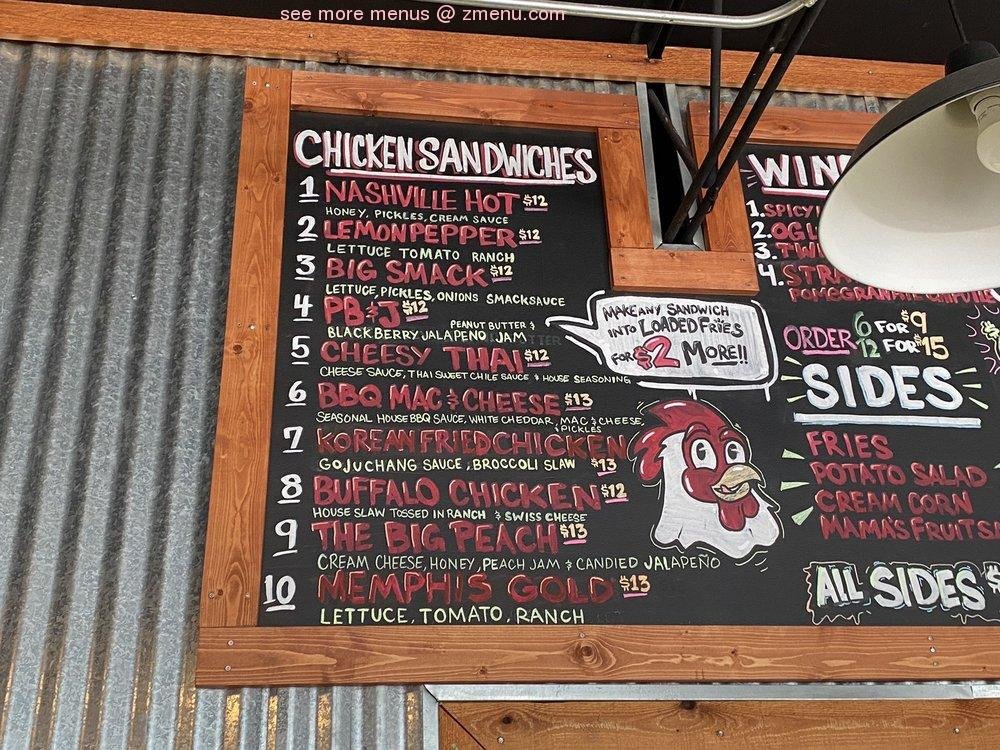 see more menus @ zmenu.com
CHICKEN SANDWICHES
1 NASHVILLE HOT $12
HONEY, PICKLES, CREAM SAUCE
2 LEMON PEPPER $12
LETTUCE TOMATO RANCH
3 BIG SMACK $12
LETTUCE, PICKLES, ONIONS SMACKSAUCE
4 PB & J $12
PEANUT BUTTER &
BLACKBERRY JALAPENO JAM
5 CHEESY THAI $12
CHEESE SAUCE, THAI SWEET CHILE SAUCE & HOUSE SEASONING
6 BBQ MAC & CHEESE $13
SEASONAL HOUSE BBQ SAUCE, WHITE CHEDDAR, MAC & CHEESE,
& PICKLES
7 KOREAN FRIED CHICKEN
GOJUCHANG SAUCE, BROCCOLI SLAW $13
8 BUFFALO CHICKEN $12
HOUSE SLAW TOSSED IN RANCH & SWISS CHEESE
9 THE BIG PEACH $13
CREAM CHEESE, HONEY, PEACH JAM & CANDIED JALAPEÑO
10 MEMPHIS GOLD $13
LETTUCE, TOMATO, RANCH
MAKE ANY SANDWICH
INTO LOADED FRIES
FOR $2 MORE!!
WIN
1. SPICY
2. OG
3. TW
4. STRA
POMEGRANATE CHIPOTLE
ORDER 6 FOR $9
12 FOR $15
SIDES
FRIES
POTATO SALAD
CREAM CORN
MAMA'S FRUIT S
ALL SIDES $